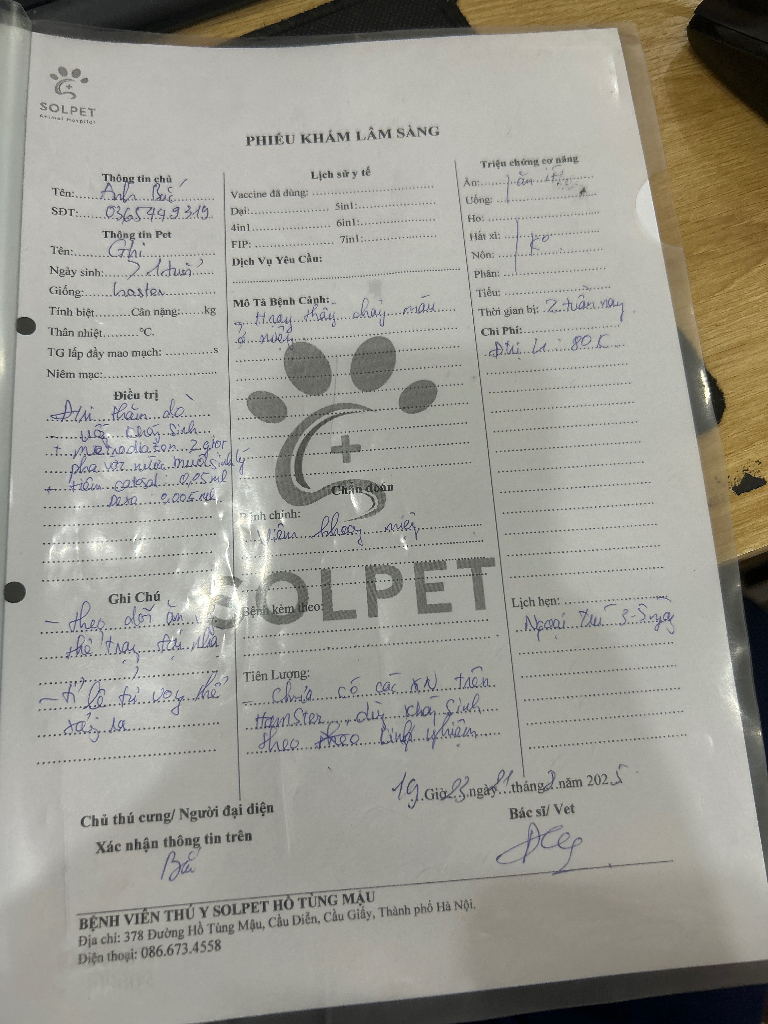 SOLPET
Animal Hospital
PHIẾU KHÁM LÂM SÀNG
Thông tin chủ
Tên: Anh Bắc
SĐT: 0365449319
Thông tin Pet
Tên: Ghi
Ngày sinh: > 1 tuổi
Giống:
Tính biệt Cân nặng: kg
Thân nhiệt °C.
TG lấp đầy mao mạch: s
Niêm mạc:
Điều trị
Điều trị thăm dò
- uống kháng sinh
+ metrodiazon 2 giọt
pha với nước muối sinh lý
+ tiêm catosal: 0,05 ml
Dexa: 0,005 ml
Ghi Chú
- theo dõi ăn
thể trạng tại nhà
- tỉ lệ tử vong thể
xảy ra
Lịch sử y tế
Vaccine đã dùng:
Dại: 5in1:
4in1 6in1:
FIP: 7in1:
Dịch Vụ Yêu Cầu:
Mô Tả Bệnh Cảnh:
- thay thấy chảy máu
ở miệng
SOLPET
Chẩn đoán
Bệnh chính:
Viêm khoang miệng
Bệnh kèm theo:
Tiên Lượng:
- Chưa có các KN trên
HamSter, dùng kháng Sinh
theo theo kinh nghiệm
Triệu chứng cơ năng
Ăn: ăn ít
Uống:
Ho:
Hắt xì:
Nôn: Ko
Phân:
Tiểu:
Thời gian bị: 2 tuần nay
Chi Phí:
80
Lịch hẹn:
Ngoại trú 3-5 ngày
19 Giờ 23 ngày 21 tháng năm 2025
Chủ thú cưng/ Người đại diện
Xác nhận thông tin trên
Bắc
Bác sĩ/ Vet
BỆNH VIỆN THÚ Y SOLPET HỒ TÙNG MẬU
Địa chỉ: 378 Đường Hồ Tùng Mậu, Cầu Diễn, Cầu Giấy, Thành phố Hà Nội.
Điện thoại: 086.673.4558